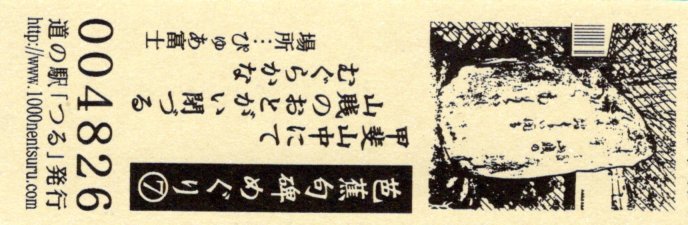 芭蕉句碑めぐり⑦
甲斐山中にて
山賎のおとがい閉づる
むぐらかな
場所…ぴゅあ富士
004826
道の駅「つる」発行
http://www.1000nentsuru.com